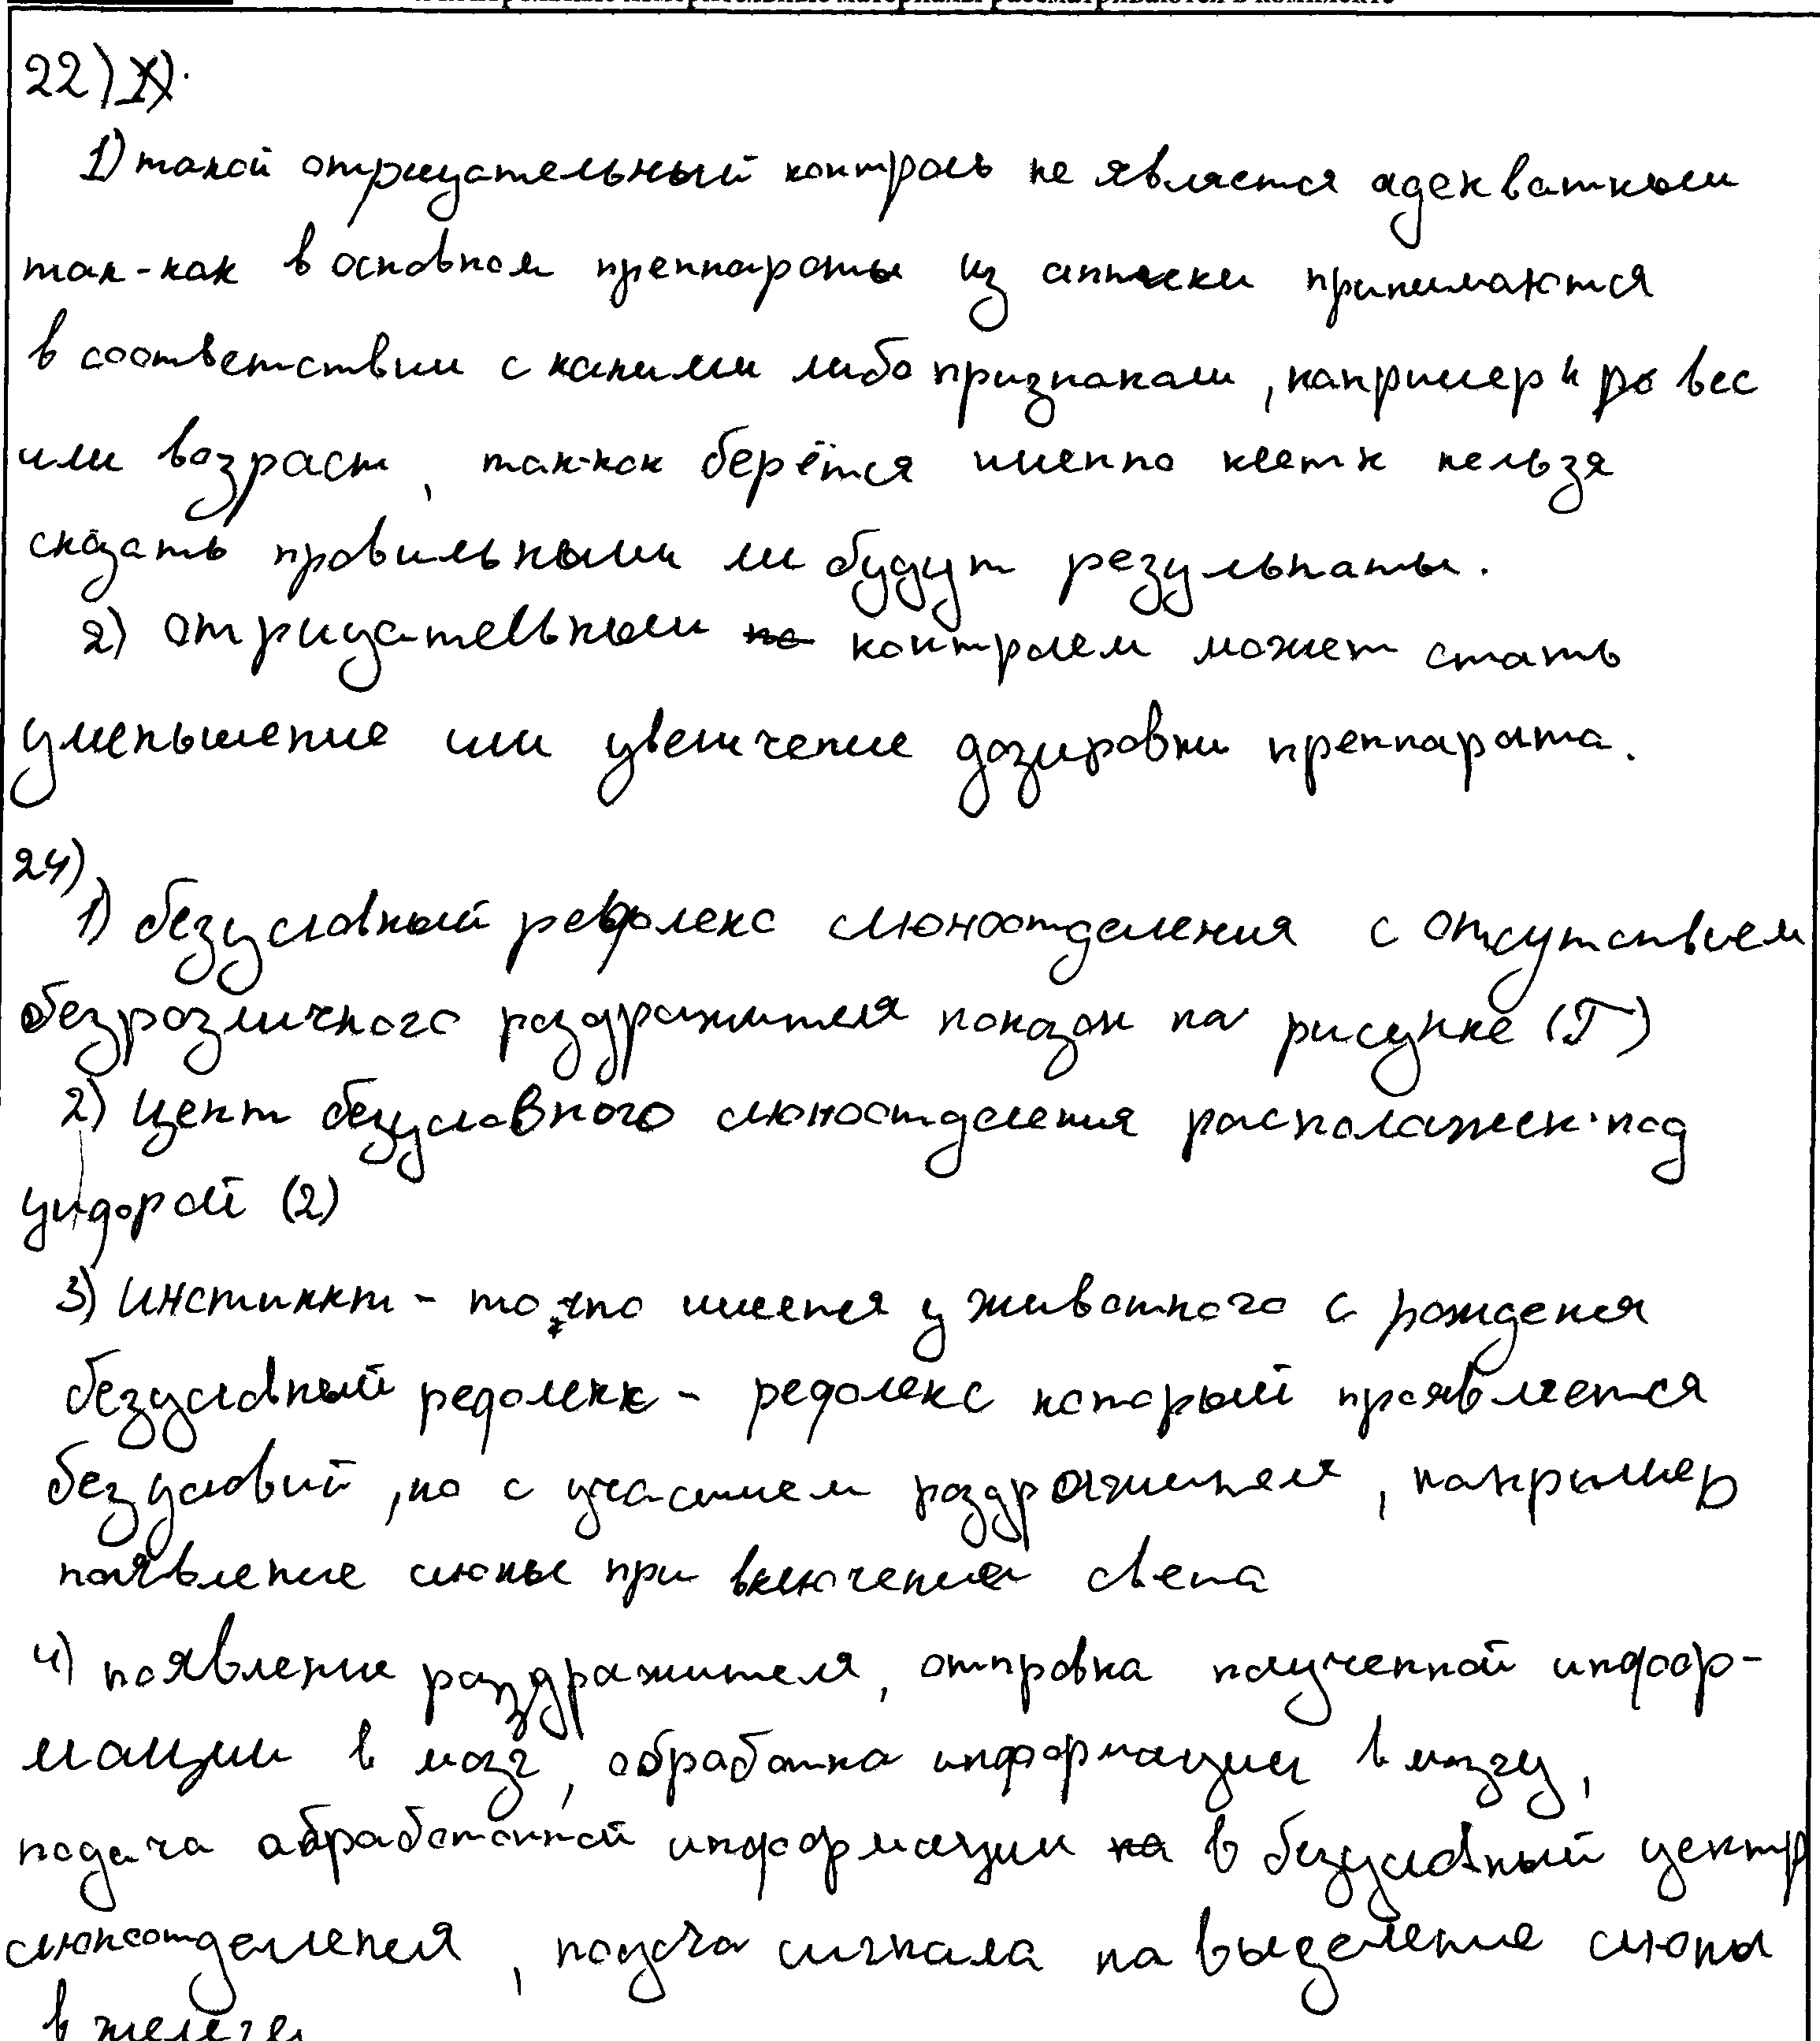 контрольные измерительные материалы рассматриваются в комплекте
22)
1) такой отрицательный контроль не является адекватным
так-как в основном преппараты из аптеки принимаются
в соответствии с какими либо признаками, например вес
или возраст, так-как берётся именно нельзя
сказать правильными ли будут результаты.
2) отрицательным контролем может стать
уменьшение или увеличение дозировки преппарата.
24)
1) безусловный рефлекс слюноотделения с отсутствием
безразличного раздражителя показан на рисунке (Г)
2) Цент безусловного слюноотделения расположен под
цифрой (2)
3) Инстинкт - то, что имеется у животного с рождения
безусловный рефлекк - рефлекс который проявляется
без условий, но с участием раздражителя, например
появление слюны при включении света
4) появление раздражителя, отправка полученной инфор-
мации в мозг, обработка информации в мозгу,
подача обработанной информации в безусловный центр
слюноотделения, подача сигнала на выделение слюны
в железы